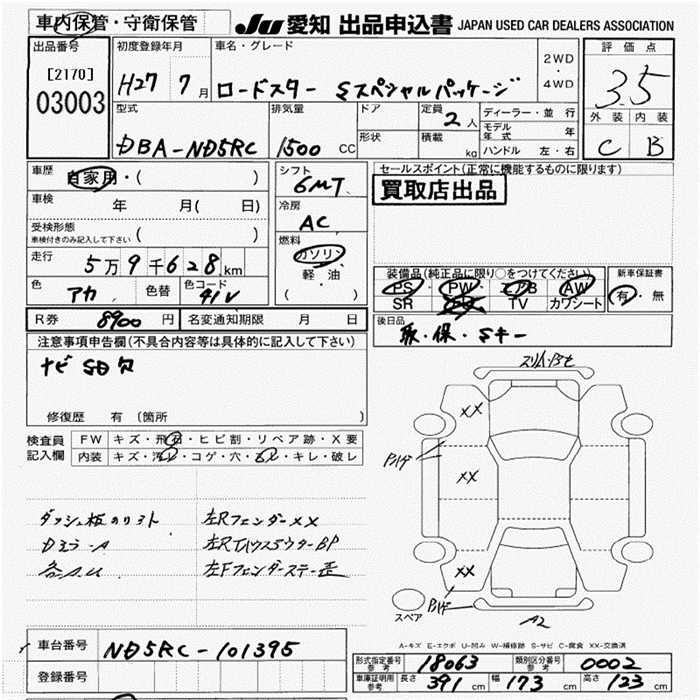 車内保管・守衛保管
JU 愛知 出品申込書 JAPAN USED CAR DEALERS ASSOCIATION
出品番号
[2170]
03003
初度登録年月
H27 7月
車名・グレード
ロードスター Sスペシャルパッケージ
2WD
・
4WD
評価点
3.5
外装 内装
C B
型式
DBA-ND5RC
排気量
1500 CC
ドア
形状
定員
2人
積載
kg
ディーラー・並行
モデル年式 年
ハンドル 左・右
車歴
自家用・( )
車検
年 月( 日)
受検形態
車検付きのみ記入して下さい ( )
走行
5万9千628km
色
アカ
色替
色コード
41V
シフト
6MT
冷房
AC
燃料
ガソリン
・
軽・油
( )
セールスポイント(正常に機能するものに限ります)
買取店出品
装備品(純正品に限り○をつけてください)
PS・PW・エアB AW
SR TV カワシート
新車保証書
有・無
R券 8900円
名変通知期限 月 日
後日品
取・保・Sキー
注意事項申告欄(不具合内容等は具体的に記入して下さい)
ナビSD欠
修復歴 有(箇所 )
検査員
記入欄
FW キズ・飛石・ヒビ割・リペア跡・X要
内装 キズ・汚レ・コゲ・穴・スレ・キレ・破レ
XX
XX
XX
A2
スペア
A-キズ E-エクボ U-凹み W-補修跡 S-サビ C-腐食 XX-交換済
左RフェンダーXX
Dミラ-A
左Fフェンダーステー歪
各A.U
車台番号
ND5RC-101395
登録番号
形式指定番号 参考
18063
類別区分番号 参考
0002
車庫証明用 参考
長さ 391cm
幅 173cm
高さ 123cm